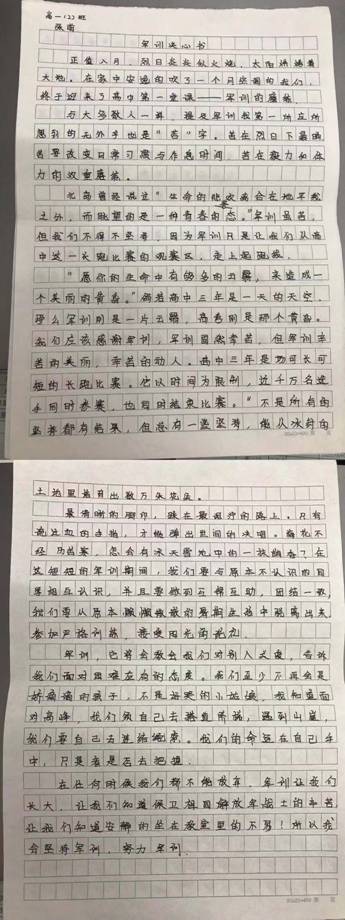 高一(2)班
陈雨
军训决心书
正值八月，烈日炎炎似火炮，太阳烤着
大地。在家中安逸的吹了一个月空调的我们，
终于迎来了高中第一堂课——军训的磨练
与大多数人一样，提及军训我第一所应所
想到的无外乎也是"苦"字。苦在烈日下暴晒
苦要改变日常习惯与作息时间，苦在毅力和体
力的双重磨炼。
北岛曾经说过"生命的
之外，而眺望的是一种青春的态。"军训虽苦，
但我们不得不坚着，因为军训只是让我们从高
中这一长跑比赛的观赛区，走上起跑线。
"愿你的生命中有够多的云翳，来造成一
个美丽的黄昏。"倘若高中三年是一天的天空，
那么军训则是一片云翳，高考则是那个黄昏。
我们应该感谢军训，军训固然辛苦，但军训辛
苦的美丽，辛苦的动人。高中三年是场可长可
短的长跑比赛，他以时间为限制，近千万名选
手同时参赛，也同时结束比赛。"不是所有的
坚持都有结果，但总有一些坚持，能从冰封的
土地里培育出数万朵花朵。
最清晰的脚印，踩在最泥泞的路上。只有
流过血的手指，才能弹出世间的绝唱。梅花不
经 怎会有冰天雪地中的一枝幽香？在
这短短的军训期间，我们要与原本不认识的同
学相互认识，并且要做到互帮互助，团结一致，
我们要从原本 的暑期生活中脱离出来，
参加严格训练，接受阳光的洗礼
军训，它将会教会我们对别人关爱，告诉
我们面对困难应有的态度。我们至少不再会是
娇滴滴的孩子，不是爱哭的小姑娘，我知道面
对高峰，我们须自己去 ，遇到山崖，
我们要自己去 。我们的命运在自己手
中，只是看是否去把握。
在任何时候我们都不能放弃，军训让我们
长大，让我们知道保卫祖国解放军战士的辛苦
让我们知道安静的坐在教室里的不易！所以我
会坚持军训，努力军训。